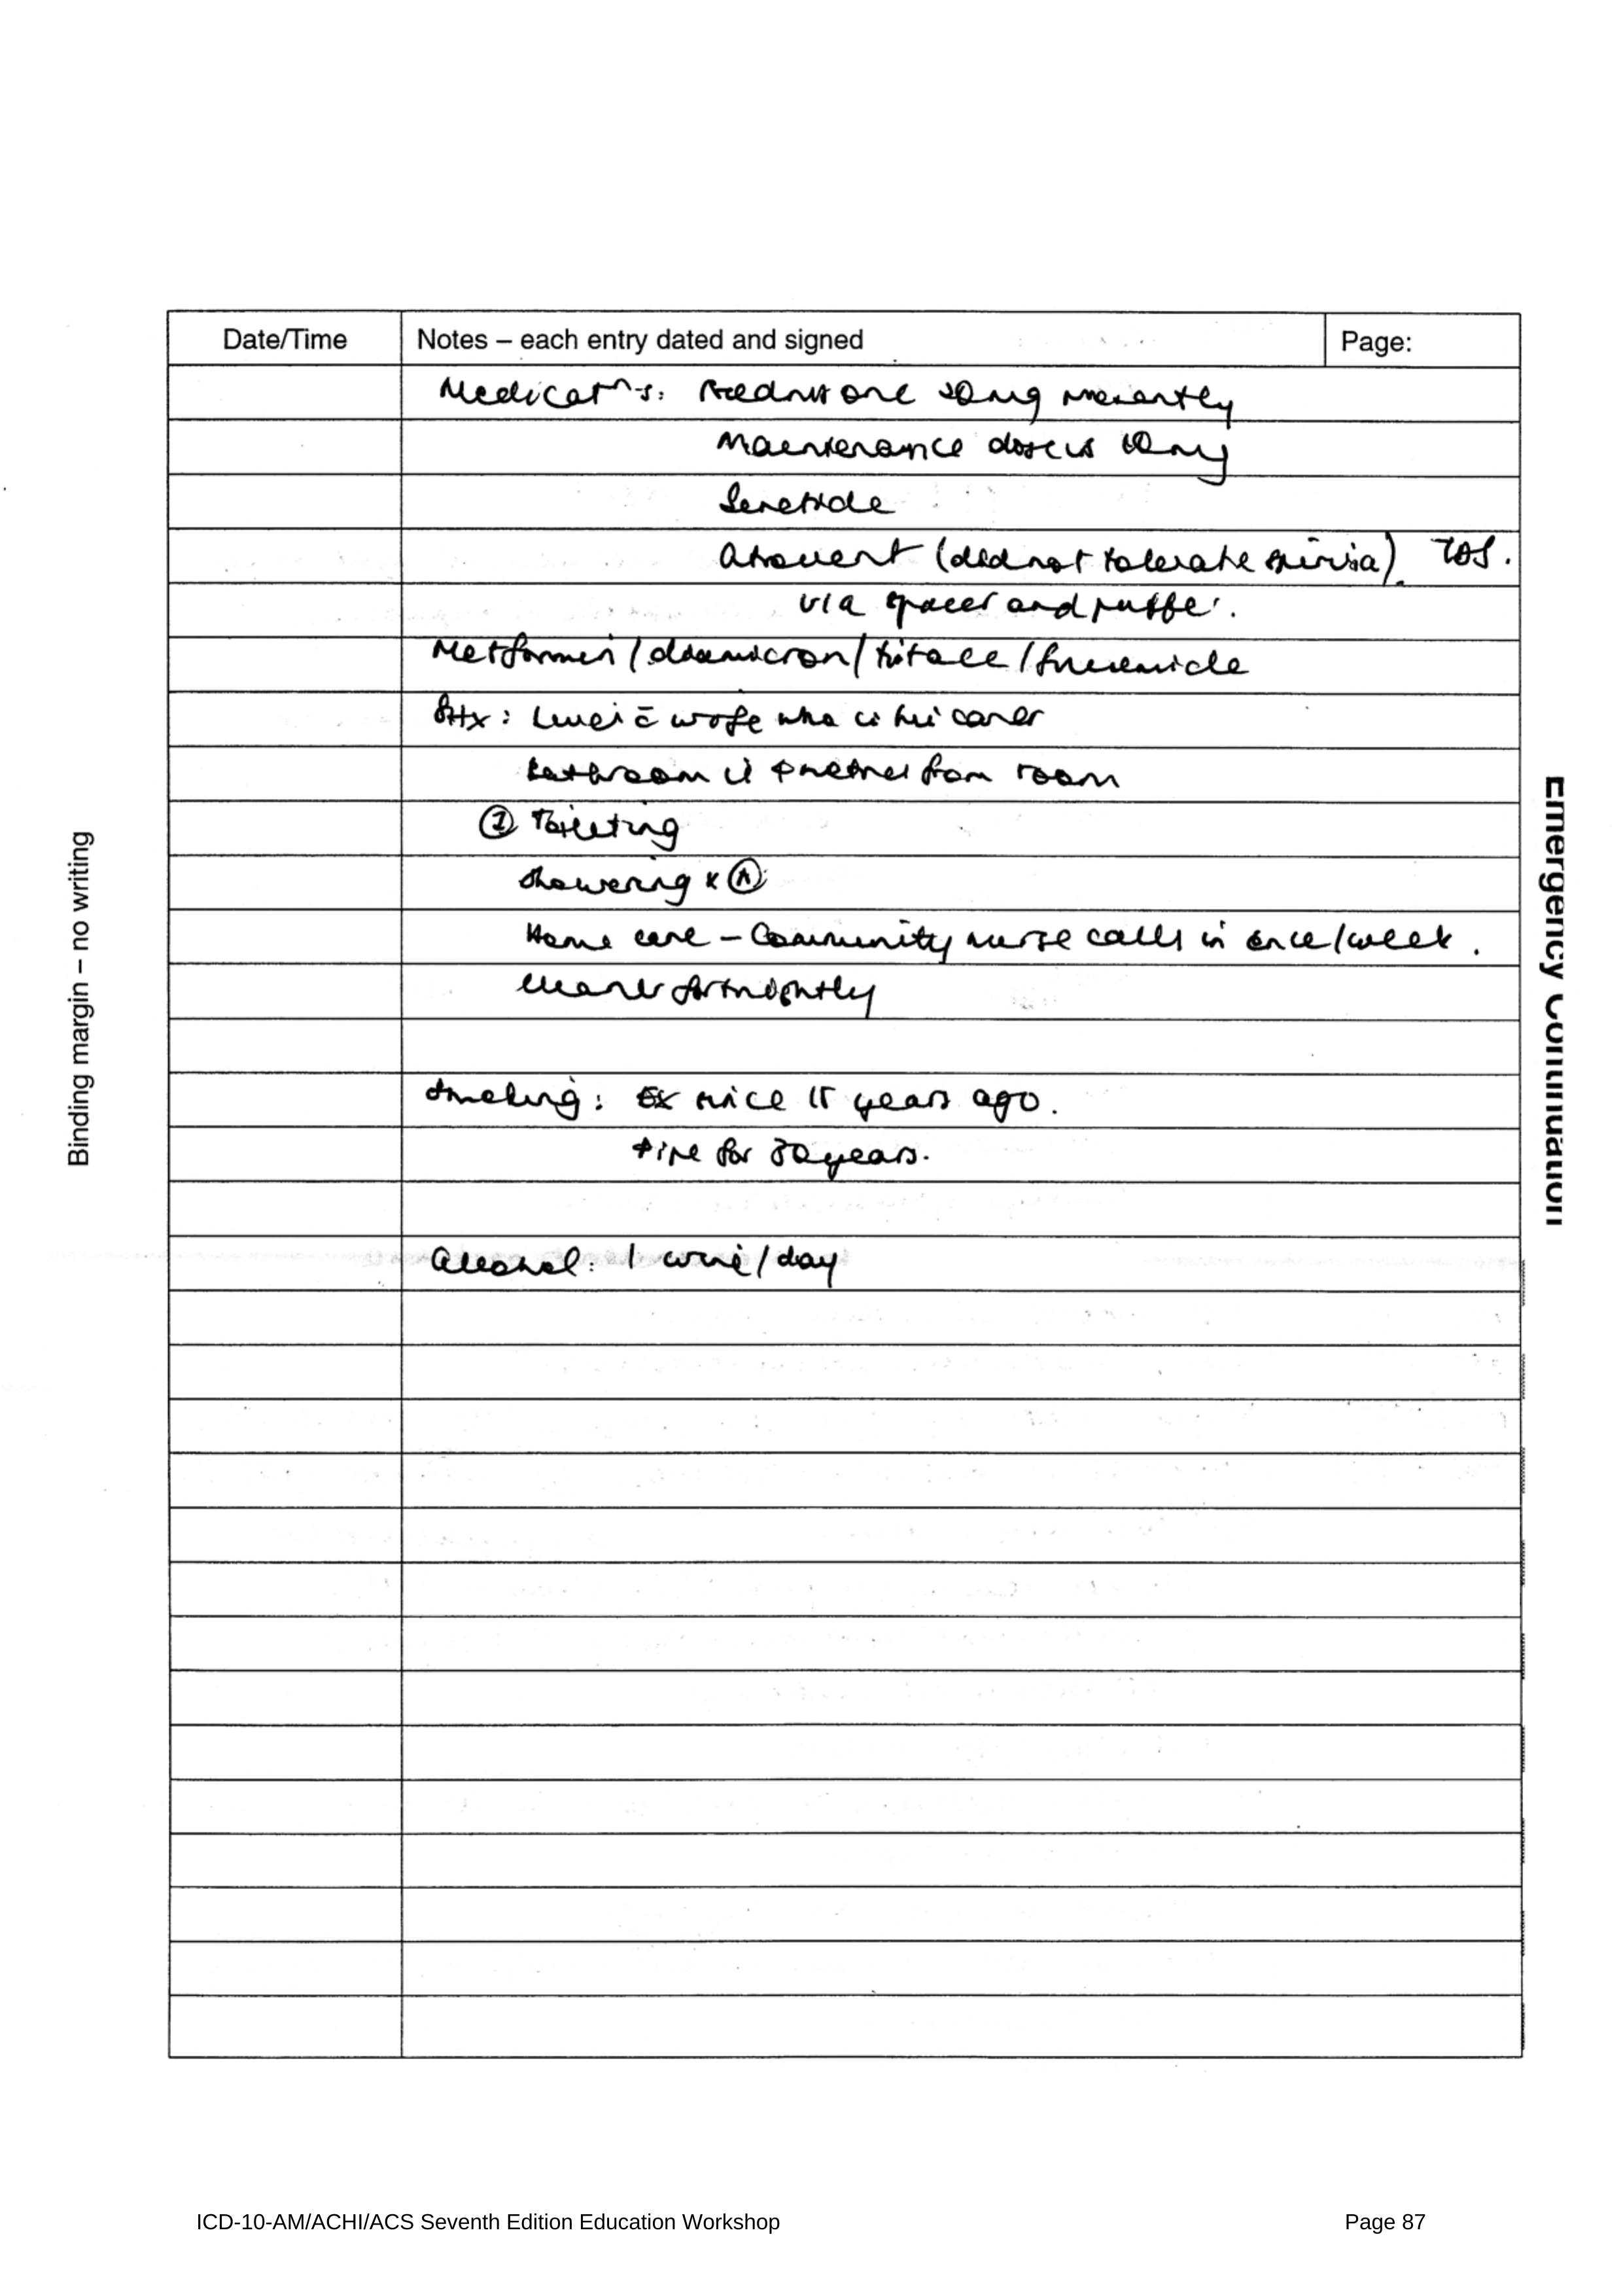 Date/Time Notes – each entry dated and signed Page:
Medicatⁿs: Prednisone 50mg presently
Maintenance dose is 10mg
Seretide
Atrovent (did not tolerate spiriva). TDS.
via spacer and puffer.
Metformin / diamicron / tritace / frusemide
SHx: Lives c̄ wife who is his carer
Bathroom is metres from room
Ⓘ Toileting
Showering x Ⓐ
Home care – Community nurse calls in once/week.
cleaner fortnightly
Smoking: Ex since 15 years ago.
Pipe for 30 years.
Alcohol: 1 wine/day
Binding margin – no writing
Emergency Continuation
ICD-10-AM/ACHI/ACS Seventh Edition Education Workshop Page 87